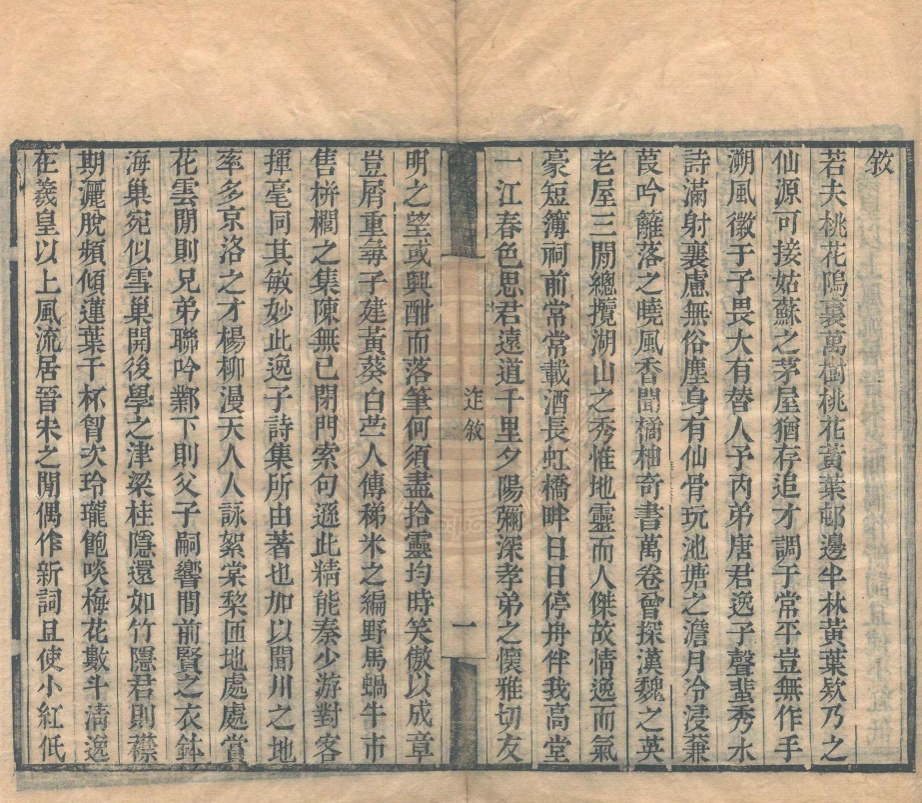 敘
若夫桃花隖裏萬樹桃花黃葉邨邊半林黃葉欵乃之
仙源可接姑蘇之茅屋猶存追才調于常平豈無作手
溯風徽于子畏大有替人予丙弟唐君逸子聲蜚秀水
詩滿射襄慮無俗塵身有仙骨玩池塘之澹月冷浸蒹
葭吟籬落之曉風香聞橘柚奇書萬卷曾探漢魏之英
老屋三閒總攬湖山之秀惟地靈而人傑故情逸而氣
豪短簿祠前常常載酒長虹橋畔日日停舟伴我高堂
一江春色思君遠道千里夕陽彌深孝弟之懷雅切友
迮敘
一
明之望或興酣而落筆何須盡拾靈均時笑傲以成章
豈屑重尋子建黃葵白苎人傳稊米之編野馬蝸牛市
售栟櫚之集陳無已閉門索句遜此精能秦少游對客
揮毫同其敏妙此逸子詩集所由著也加以聞川之地
率多京洛之才楊柳漫天人人詠絮棠棃匝地處處賞
花雲閒則兄弟聯吟鄴下則父子嗣響間前賢之衣鉢
海巢宛似雪巢開後學之津梁桂隱還如竹隱君則襟
期灑脫頻傾蓮葉千杯胷次玲瓏飽啖梅花數斗淸逸
在羲皇以上風流居晉宋之閒偶作新詞且使小紅低